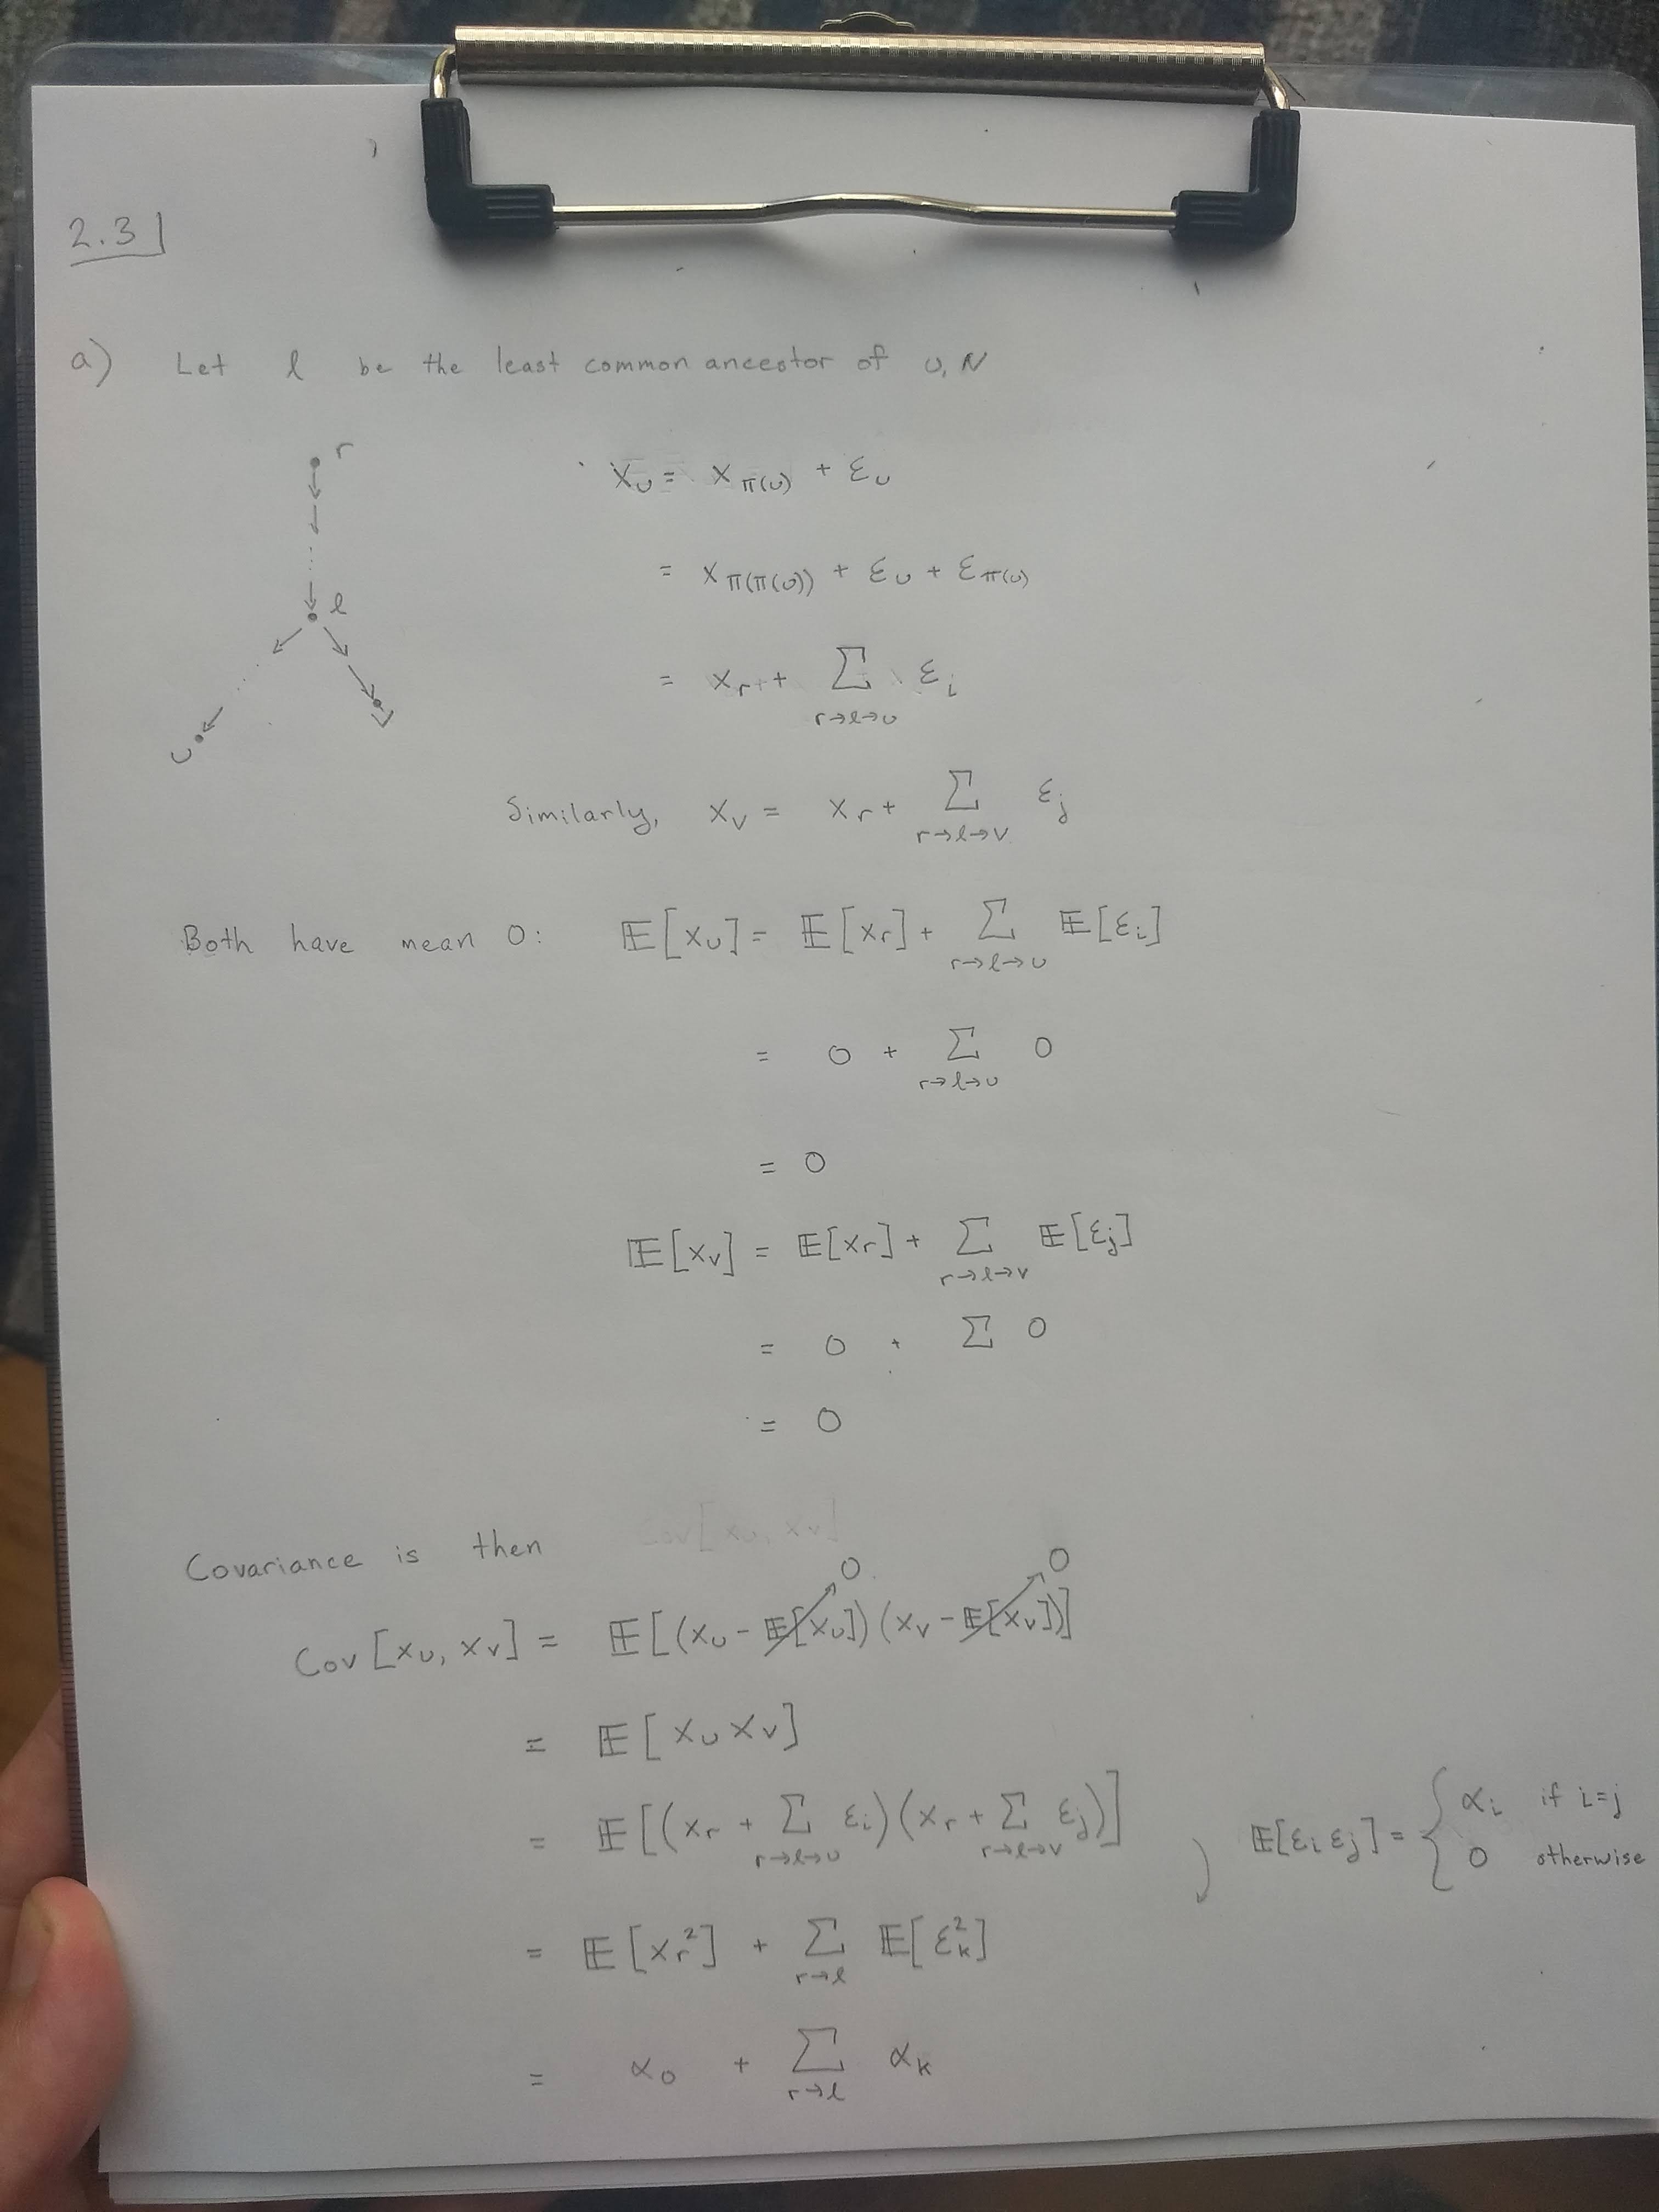 2.3
a) Let l be the least common ancestor of u, v
r
l
u
v
x_u = x_π(u) + ε_u
= x_π(π(u)) + ε_u + ε_π(u)
= x_r + Σ_{r→l→u} ε_i
Similarly, x_v = x_r + Σ_{r→l→v} ε_j
Both have mean 0: 𝔼[x_u] = 𝔼[x_r] + Σ_{r→l→u} 𝔼[ε_i]
= 0 + Σ_{r→l→u} 0
= 0
𝔼[x_v] = 𝔼[x_r] + Σ_{r→l→v} 𝔼[ε_j]
= 0 + Σ 0
= 0
Covariance is then
Cov[x_u, x_v] = 𝔼[(x_u - 𝔼[x_u])(x_v - 𝔼[x_v])]
0 0
= 𝔼[x_u x_v]
= 𝔼[(x_r + Σ_{r→l→u} ε_i)(x_r + Σ_{r→l→v} ε_j)]
𝔼[ε_i ε_j] = { α_i if i=j
0 otherwise
= 𝔼[x_r²] + Σ_{r→l} 𝔼[ε_k²]
= α_0 + Σ_{r→l} α_k